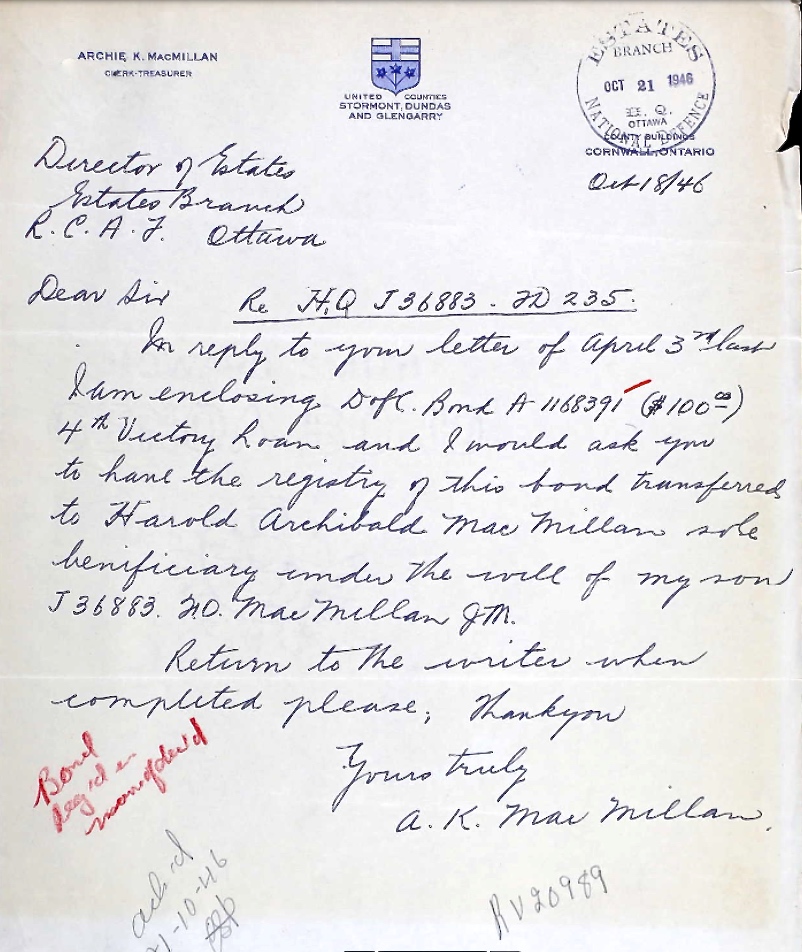 ARCHIE K. MACMILLAN
CLERK-TREASURER
UNITED COUNTIES
STORMONT, DUNDAS
AND GLENGARRY
ESTATES
BRANCH
OCT 21 1946
H. Q.
OTTAWA
NATIONAL DEFENCE
COUNTY BUILDINGS
CORNWALL, ONTARIO
Oct 18/46
Director of Estates
Estates Branch
R. C. A. F. Ottawa
Dear Sir Re H.Q J36883. FD 235.
In reply to your letter of April 3rd last
I am enclosing D of C. Bond A 1168391 ($100.00)
4th Victory Loan and I would ask you
to have the registry of this bond transferred
to Harold Archibald MacMillan sole
benificiary under the will of my son
J36883. F.O. MacMillan J.M.
Return to the writer when
completed please; Thankyou
Yours truly
A. K. MacMillan.
Bond
Reg'd in
name of dec'd
ack'd
21-10-46
RV20989